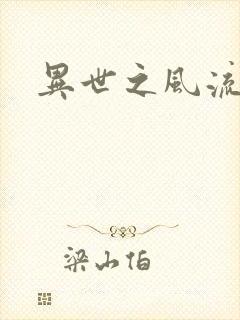 異世之風流
梁山伯